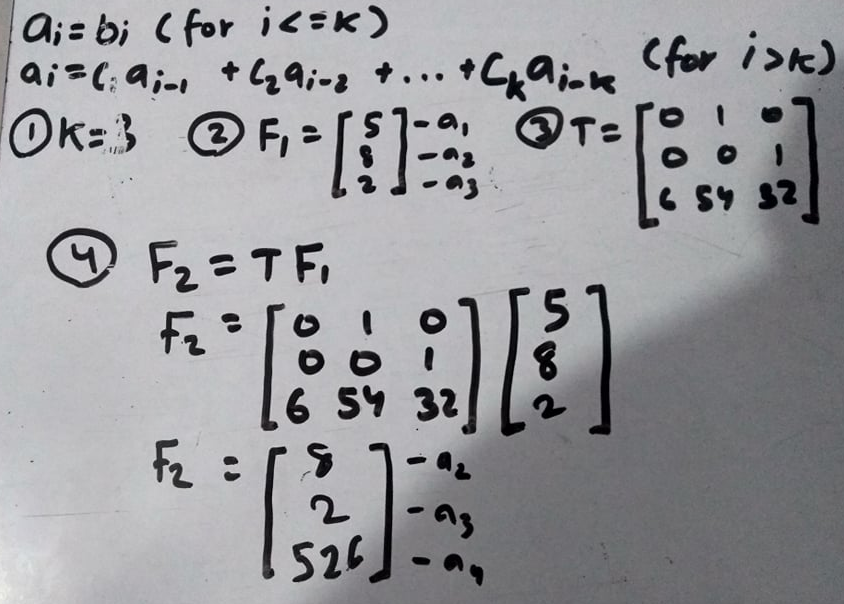 ai = bi (for i <= k)
ai = C1 ai-1 + C2 ai-2 + ... + Ck ai-k (for i > k)
① K = 3 ② F1 = [5 8 2] - a1 - a2 - a3 ③ T = [0 1 0
0 0 1
6 54 32]
④ F2 = T F1
F2 = [0 1 0 [5
0 0 1 8
6 54 32] 2]
F2 = [8 - a2
2 - a3
526] - a4